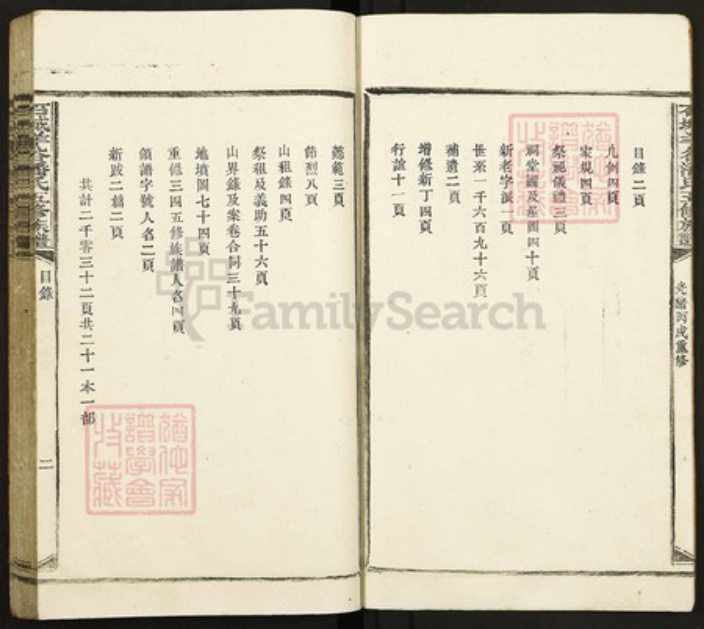 光緒丙戌重修
目錄二頁
凡例四頁
家規四頁
祭祀儀禮三頁
祠堂圖及墓圖四十頁
新老字派一頁
世系一千六百九十六頁
補遺二頁
增修新丁四頁
行誼十一頁
懿範三頁
節烈八頁
山租錄四頁
祭租及義助五十六頁
山界錄及案卷合同三十九頁
地墳圖七十四頁
重修三四五修族譜人名四頁
領譜字號人名二頁
新跋二篇二頁
共計二千零三十二頁共二十一本一部
目錄
二
FamilySearch
猶他家
譜學會
收藏